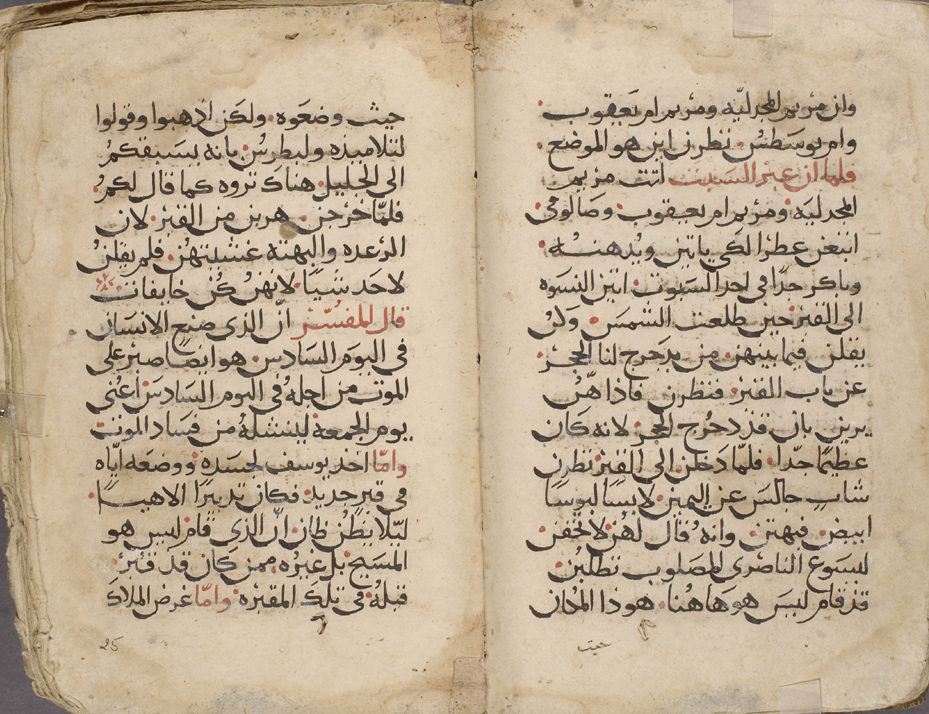 وان مريم المجدليّه ومريم ام يعقوب
وام يوسطس نظرن اين هو الموضع
فلما ان عبر السبت اتت مريم
المجدليه ومريم ام يعقوب وصالومي
ابتعن عطرا لكي ياتين ويدهنّه
وباكر جدًا في احد السبوت اتين النسوه
الى القبر حين طلعت الشمس وكن
يقلن فيما بينهن من يدحرج لنا الحجر
عن باب القبر فنظرن فاذا هنّ
يرين بان قد دحرج الحجر لانه كان
عظيمًا جدّا فلمّا دخلن الى القبر نظرن
شاب جالس عن اليمين لابسًا لبوسًا
ابيض فبهتن وانه قال لهن لا تخفن
ليسوع الناصرى المصلوب تطلبن
قد قام ليس هو هاهنا هوذا المكان
حيث
حيث وضعوه ولكن اذهبوا وقولوا
لتلاميذه ولبطرس بانه يسبقكم
الى الجليل هناك تروه كما قال لكم
فلمّا خرجن هربن من القبر لان
الرعده والبهته غشيتهن فلم يقلن
لاحد شيئا لانهن كن خايفات
قال المفسّر انّ الذى صنع الانسان
في اليوم السادس هو ايضًا صبر على
الموت من اجله في اليوم السادس اعنى
يوم الجمعة لينشله من فساد الموت
وامّا اخذ يوسف لجسده ووضعه ايّاه
في قبر جديد فكان تدبيرًا الاهيًا
ليّلا يظن ظان انّ الذى قام ليس هو
المسيح بل غيره ممن كان قد قبر
قبله في تلك المقبره وامّا غرض الملاك
25